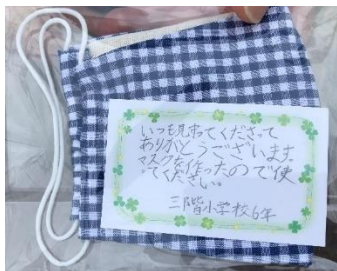 いつも見守ってくださって
ありがとうございます。
マスクを作ったので使
ってください。
三階小学校6年